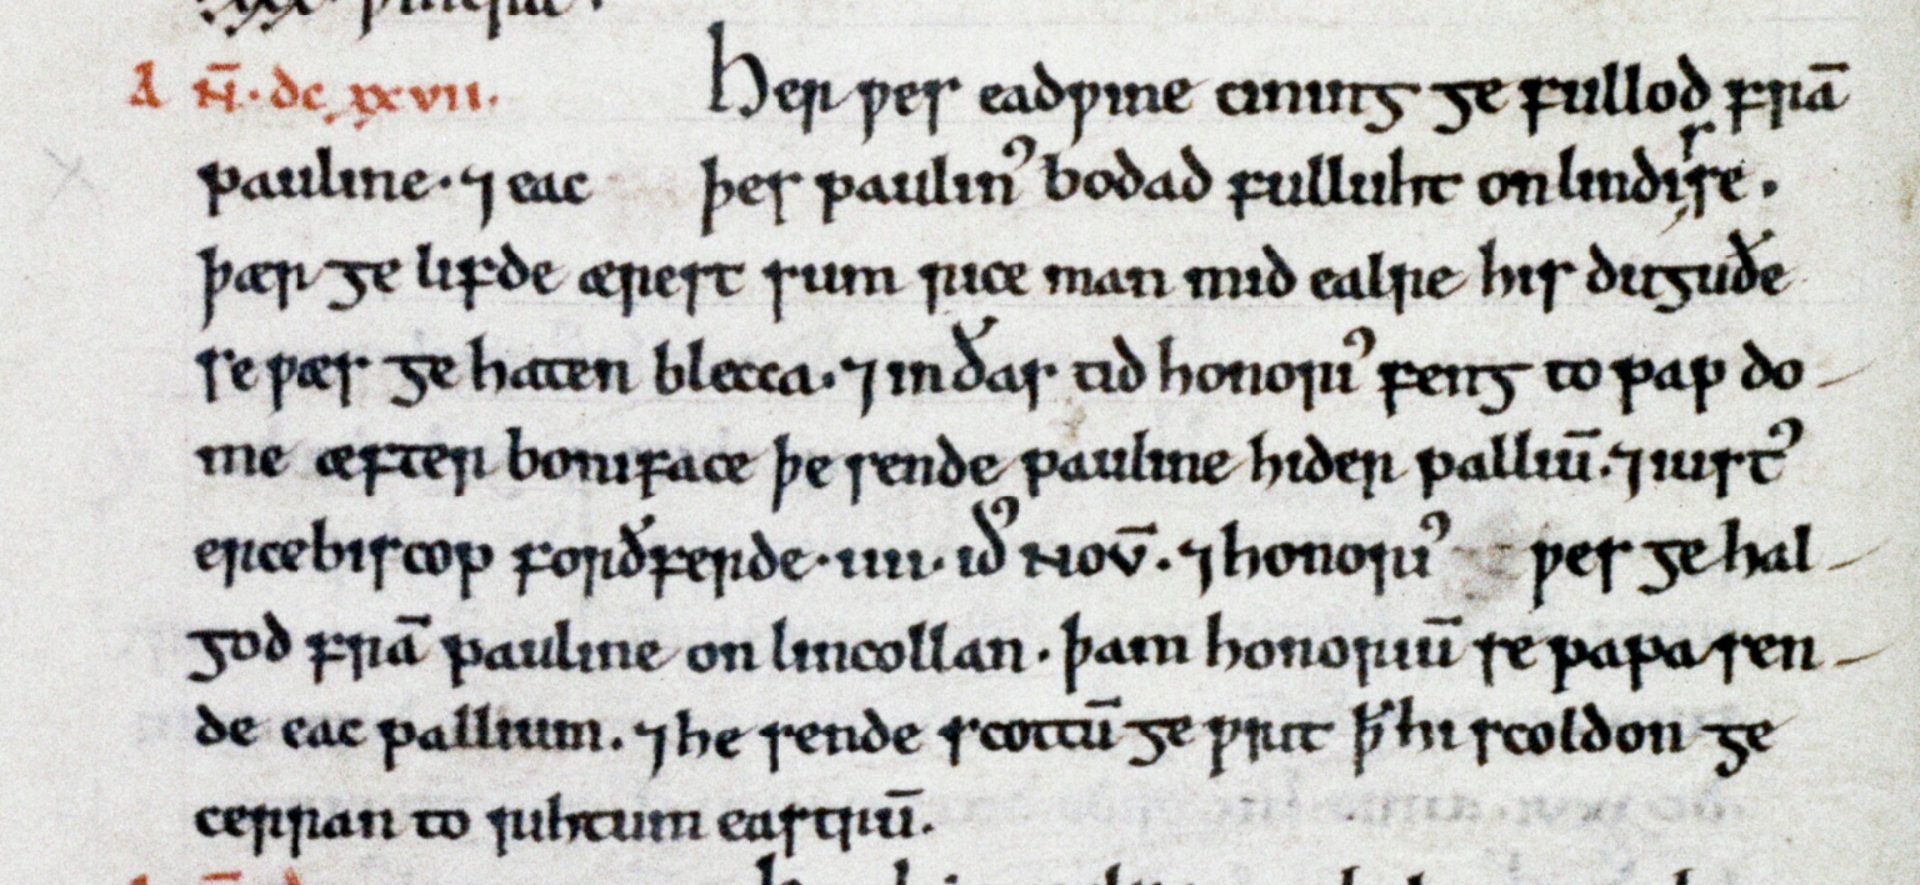 AN̄. dc.xxvii. Her ƿes eadƿine cining ge fullod frā
pauline. ⁊ eac þes paulinꝰ bodad fulluht on lindisse.
þær ge lifde ærest sum rice man mid ealre his duguðe
se ƿæs ge haten blecca. ⁊ in ðas tid honoriꝰ feng to pap do
me æfter boniface þe sende pauline hider palliū. ⁊ iustꝰ
ercebiscop forðferde. iiii. id̛ꝰ nov̄. ⁊ honoriꝰ ƿes ge hal
god frā pauline on lincollan. þam honoriū se papa sen
de eac pallium. ⁊ he sende scottū ge ƿrit ꝥ hi scoldon ge
cerran to rihtum eastrū.